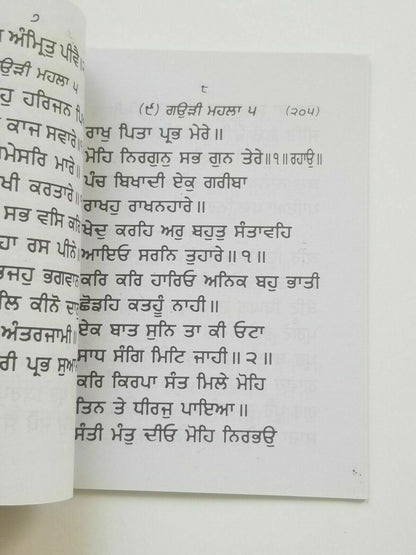 ੭
ਅੰਮ੍ਰਿਤੁ ਪੀਵੈ
ਗਉੜੀ ਮਹਲਾ ੫
ਹਰਿਜਨ
ਕਾਜ ਸਵਾਰੇ
ਮਾਰੇ
ਕਰਤਾਰੇ
ਸਭ ਵਸਿ ਕਰਿ
ਰਸ ਪੀਨੋ
ਭਗਵਾਨ
ਕੀਨੋ
ਅੰਤਰਜਾਮੀ
ਪ੍ਰਭ ਸੁਆ
੮
(੯) ਗਉੜੀ ਮਹਲਾ ੫ (੨੦੫)
ਰਾਖੁ ਪਿਤਾ ਪ੍ਰਭ ਮੇਰੇ॥
ਮੋਹਿ ਨਿਰਗੁਨੁ ਸਭ ਗੁਨ ਤੇਰੇ॥੧॥ਰਹਾਉ॥
ਪੰਚ ਬਿਖਾਦੀ ਏਕੁ ਗਰੀਬਾ
ਰਾਖਹੁ ਰਾਖਨਹਾਰੇ॥
ਖੇਦੁ ਕਰਹਿ ਅਰੁ ਬਹੁਤੁ ਸੰਤਾਵਹਿ
ਆਇਓ ਸਰਨਿ ਤੁਹਾਰੇ॥੧॥
ਕਰਿ ਕਰਿ ਹਾਰਿਓ ਅਨਿਕ ਬਹੁ ਭਾਤੀ
ਛੋਡਹਿ ਕਤਹੂੰ ਨਾਹੀ॥
ਏਕ ਬਾਤ ਸੁਨਿ ਤਾ ਕੀ ਓਟਾ
ਸਾਧ ਸੰਗਿ ਮਿਟਿ ਜਾਹੀ॥੨॥
ਕਰਿ ਕਿਰਪਾ ਸੰਤ ਮਿਲੇ ਮੋਹਿ
ਤਿਨ ਤੇ ਧੀਰਜੁ ਪਾਇਆ॥
ਸੰਤੀ ਮੰਤੁ ਦੀਓ ਮੋਹਿ ਨਿਰਭਉ